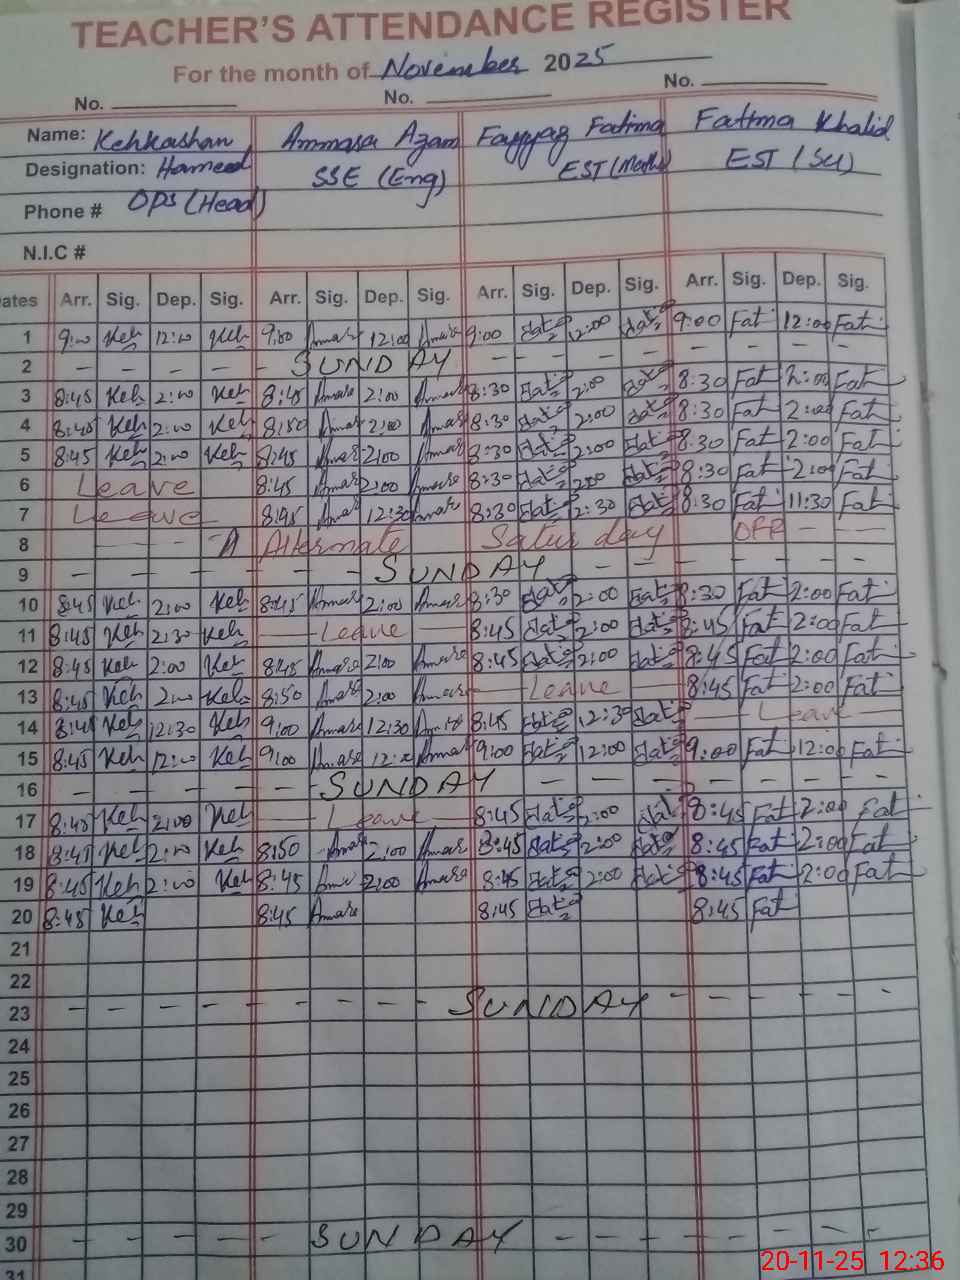 TEACHER'S ATTENDANCE REGISTER
For the month of November 2025
No. No. No.
Name: Kehkashan Ammara Azam Fayyaz Fatima Fatima Khalid
Designation: Hameed SSE (Eng) EST (Maths) EST (Sci)
Phone # OPS (Head)
N.I.C #
Dates Arr. Sig. Dep. Sig. Arr. Sig. Dep. Sig. Arr. Sig. Dep. Sig. Arr. Sig. Dep. Sig.
1 9:00 Keh 12:00 Keh 9:00 12:00 9:00 12:00 9:00 Fat 12:00 Fat
2 SUNDAY
3 8:45 Keh 2:00 Keh 8:45 2:00 8:30 2:00 8:30 Fat 2:00 Fat
4 8:45 Keh 2:00 Keh 8:50 2:00 8:30 2:00 8:30 Fat 2:00 Fat
5 8:45 Keh 2:00 Keh 8:45 2:00 8:30 2:00 8:30 Fat 2:00 Fat
6 Leave 8:45 2:00 8:30 2:00 8:30 Fat 2:00 Fat
7 Leave 8:45 12:30 8:30 8:30 Fat 11:30 Fat
8 Alternate Saturday OFF
9 SUNDAY
10 8:45 Keh 2:00 Keh 8:45 2:00 8:30 2:00 8:30 Fat 2:00 Fat
11 8:45 Keh 2:30 Keh Leave 8:45 2:00 8:45 Fat 2:00 Fat
12 8:45 Keh 2:00 Keh 8:45 2:00 8:45 2:00 8:45 Fat 2:00 Fat
13 8:45 Keh 2:00 Keh 8:50 2:00 Leave 8:45 Fat 2:00 Fat
14 8:45 Keh 12:30 Keh 9:00 12:30 8:45 12:30 Leave
15 8:45 Keh 12:00 Keh 9:00 12:00 9:00 12:00 9:00 Fat 12:00 Fat
16 SUNDAY
17 8:45 Keh 2:00 Keh Leave 8:45 2:00 8:45 Fat 2:00 Fat
18 8:45 Keh 2:00 Keh 8:50 2:00 8:45 2:00 8:45 Fat 2:00 Fat
19 8:45 Keh 2:00 Keh 8:45 2:00 8:45 2:00 8:45 Fat 2:00 Fat
20 8:45 Keh 8:45 8:45 8:45 Fat
21
22
23 SUNDAY
24
25
26
27
28
29
30 SUNDAY
31
20-11-25 12:36